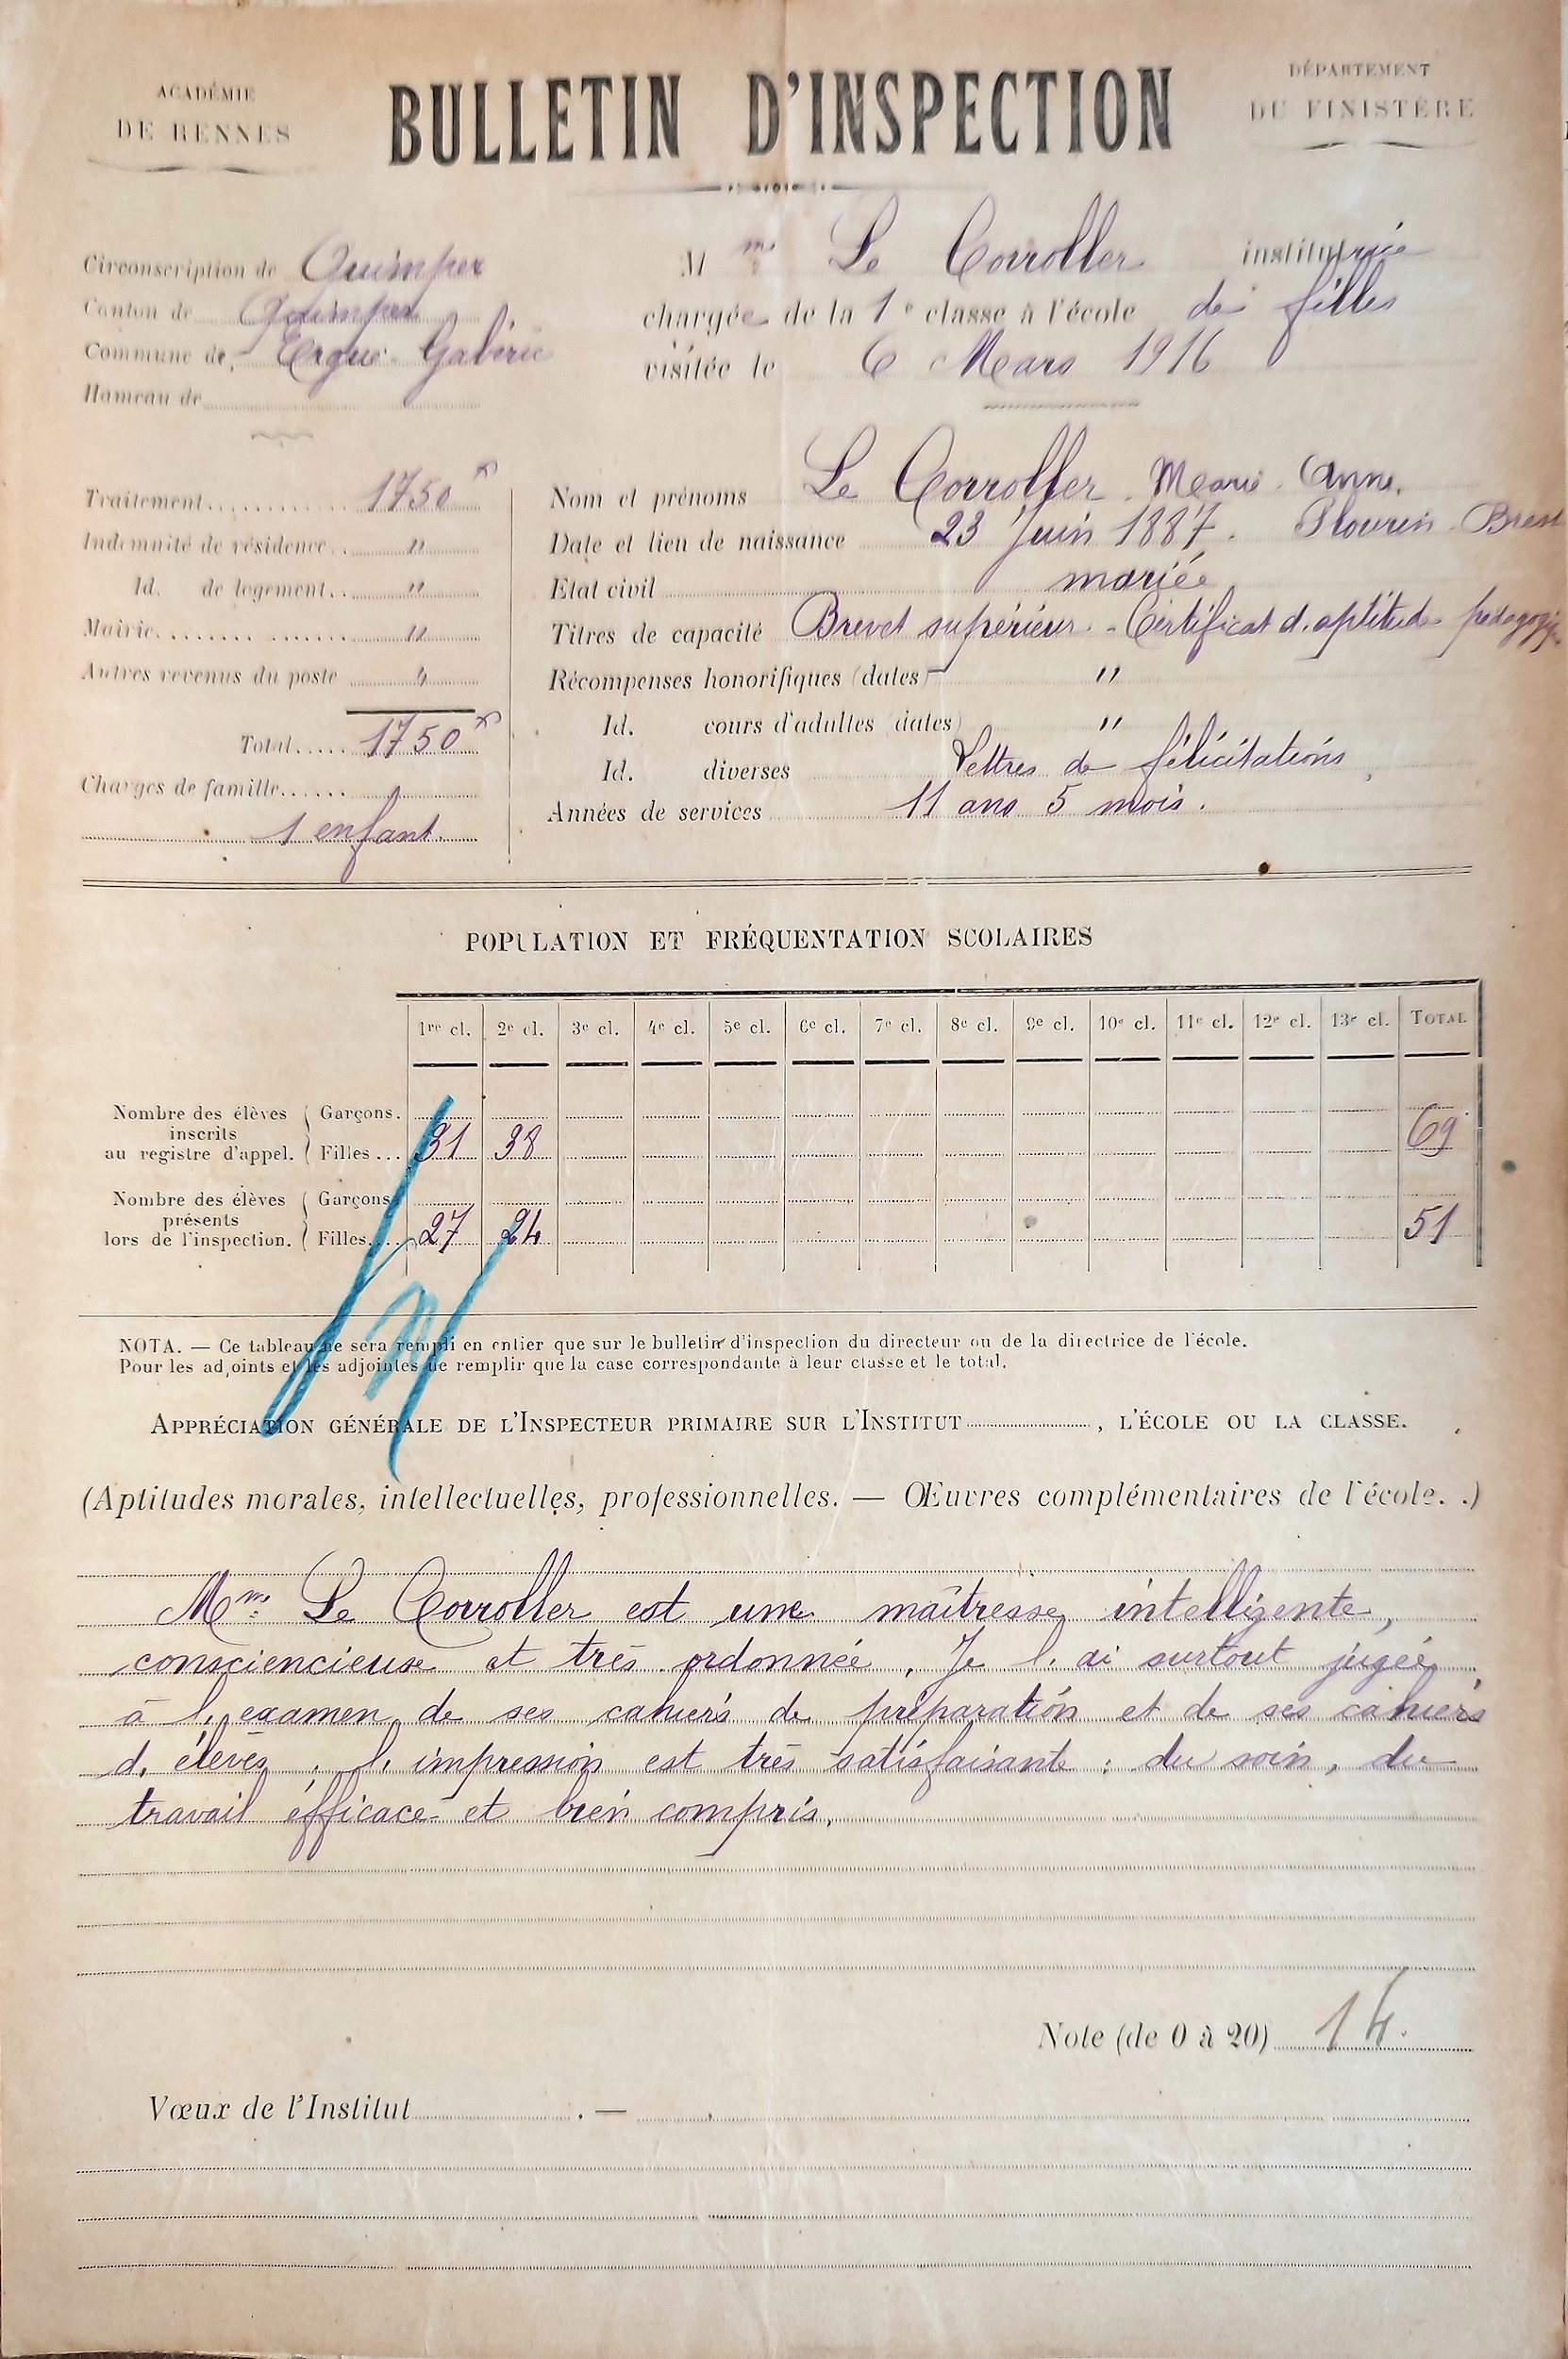 ACADÉMIE
DE RENNES
BULLETIN D'INSPECTION
DÉPARTEMENT
DU FINISTÈRE
Circonscription de Quimper
Canton de Quimper
Commune de Ergué-Gabéric
Hameau de
Mme Le Corroller institutrice
chargée de la 1e classe à l'école de filles
visitée le 6 Mars 1916
Traitement............ 1750 f
Indemnité de résidence.. "
Id. de logement.. "
Mairie........ ....... "
Autres revenus du poste "
Total..... 1750 f
Charges de famille......
1 enfant.
Nom et prénoms Le Corroller Marie Anne.
Date et lieu de naissance 23 Juin 1887. Plourin-Brest
Etat civil mariée
Titres de capacité Brevet supérieur - Certificat d'aptitude pédagogiq.
Récompenses honorifiques (dates) "
Id. cours d'adultes (dates) "
Id. diverses Lettres de félicitations
Années de services 11 ans 5 mois.
POPULATION ET FRÉQUENTATION SCOLAIRES
1re cl. 2e cl. 3e cl. 4e cl. 5e cl. 6e cl. 7e cl. 8e cl. 9e cl. 10e cl. 11e cl. 12e cl. 13e cl. TOTAL
Nombre des élèves inscrits au registre d'appel. Garçons.
Filles... 31 38 69
Nombre des élèves présents lors de l'inspection. Garçons.
Filles.... 27 24 51
NOTA. — Ce tableau ne sera rempli en entier que sur le bulletin d'inspection du directeur ou de la directrice de l'école.
Pour les adjoints et les adjointes ne remplir que la case correspondante à leur classe et le total.
APPRÉCIATION GÉNÉRALE DE L'INSPECTEUR PRIMAIRE SUR L'INSTITUT , L'ÉCOLE OU LA CLASSE.
(Aptitudes morales, intellectuelles, professionnelles. — Œuvres complémentaires de l'école. .)
Mme Le Corroller est une maîtresse intelligente,
consciencieuse et très ordonnée. Je l'ai surtout jugée
à l'examen de ses cahiers de préparation et de ses cahiers
d'élèves ; l'impression est très satisfaisante : du soin, du
travail efficace et bien compris.
Note (de 0 à 20) 14.
Vœux de l'Institut . —